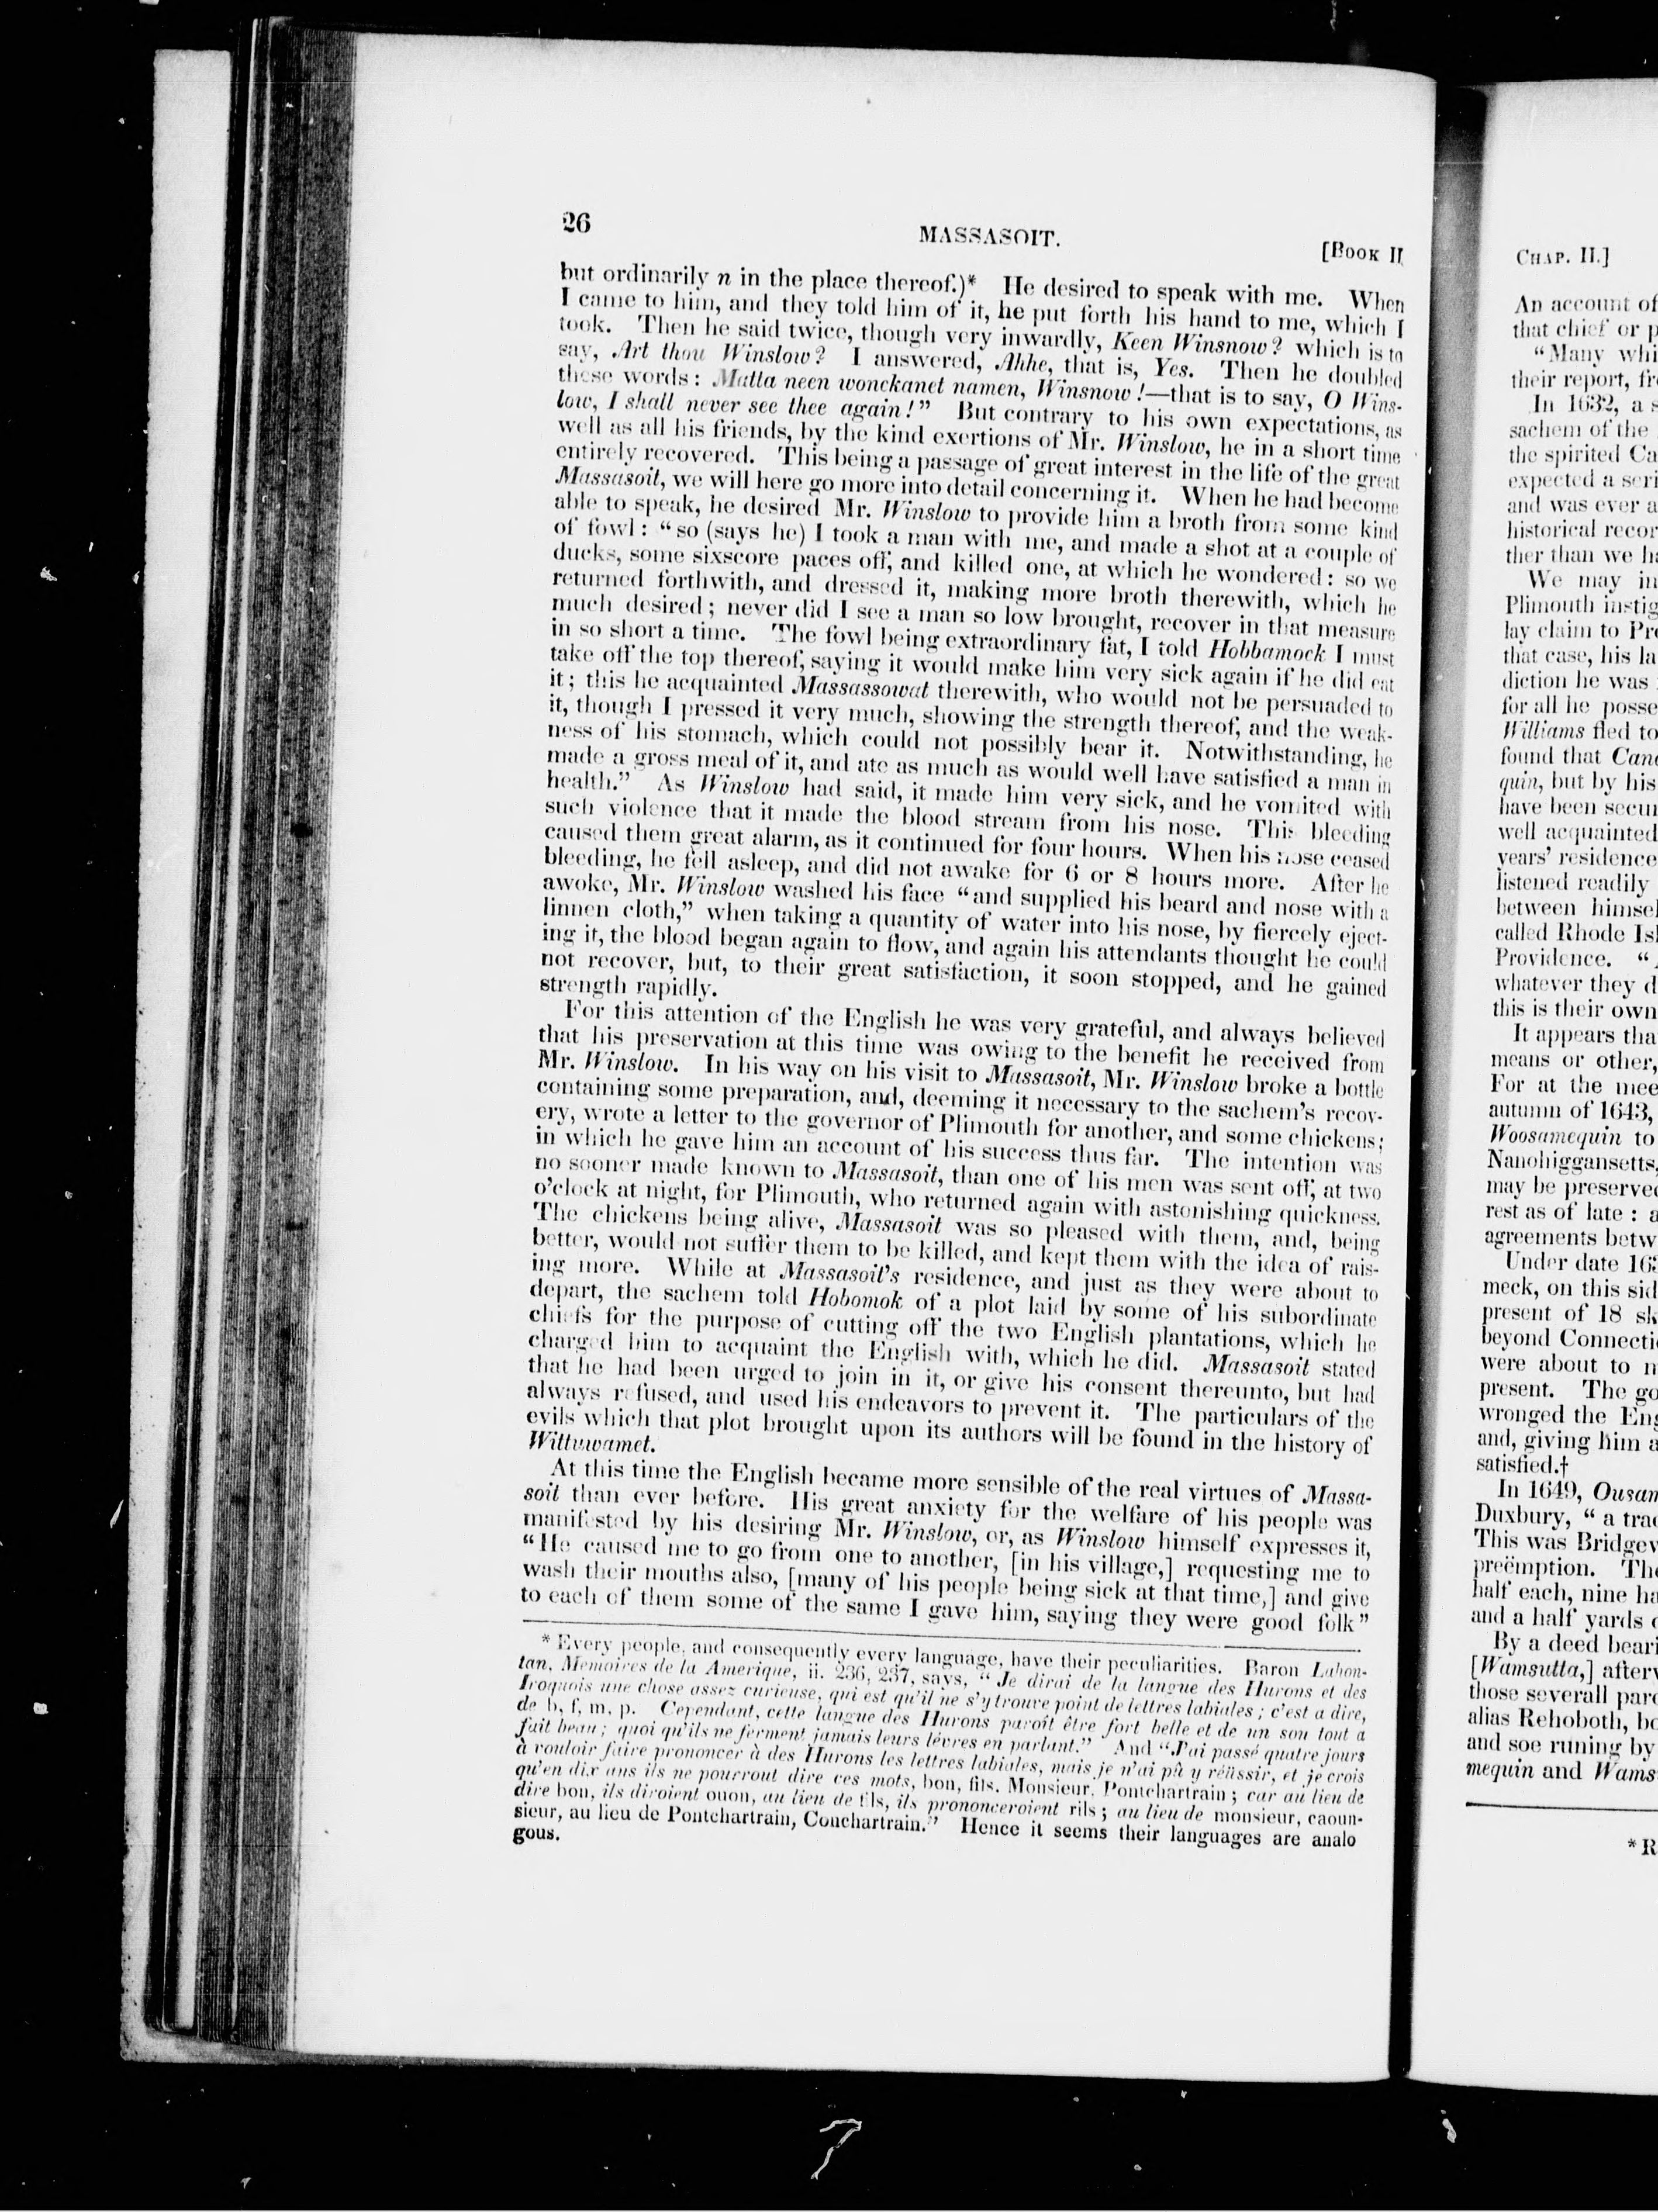 26
MASSASOIT.
[BOOK II
but ordinarily n in the place thereof.)* He desired to speak with me. When
I came to him, and they told him of it, he put forth his hand to me, which I
took. Then he said twice, though very inwardly, Keen Winsnow? which is to
say, Art thou Winslow? I answered, Ahhe, that is, Yes. Then he doubled
these words: Matta neen wonckanet namen, Winsnow!—that is to say, O Wins-
low, I shall never see thee again!" But contrary to his own expectations, as
well as all his friends, by the kind exertions of Mr. Winslow, he in a short time
entirely recovered. This being a passage of great interest in the life of the great
Massasoit, we will here go more into detail concerning it. When he had become
able to speak, he desired Mr. Winslow to provide him a broth from some kind
of fowl: "so (says he) I took a man with me, and made a shot at a couple of
ducks, some sixscore paces off, and killed one, at which he wondered: so we
returned forthwith, and dressed it, making more broth therewith, which he
much desired; never did I see a man so low brought, recover in that measure
in so short a time. The fowl being extraordinary fat, I told Hobbamock I must
take off the top thereof, saying it would make him very sick again if he did eat
it; this he acquainted Massassowat therewith, who would not be persuaded to
it, though I pressed it very much, showing the strength thereof, and the weak-
ness of his stomach, which could not possibly bear it. Notwithstanding, he
made a gross meal of it, and ate as much as would well have satisfied a man in
health." As Winslow had said, it made him very sick, and he vomited with
such violence that it made the blood stream from his nose. This bleeding
caused them great alarm, as it continued for four hours. When his nose ceased
bleeding, he fell asleep, and did not awake for 6 or 8 hours more. After he
awoke, Mr. Winslow washed his face "and supplied his beard and nose with a
linnen cloth," when taking a quantity of water into his nose, by fiercely eject-
ing it, the blood began again to flow, and again his attendants thought he could
not recover, but, to their great satisfaction, it soon stopped, and he gained
strength rapidly.
For this attention of the English he was very grateful, and always believed
that his preservation at this time was owing to the benefit he received from
Mr. Winslow. In his way on his visit to Massasoit, Mr. Winslow broke a bottle
containing some preparation, and, deeming it necessary to the sachem's recov-
ery, wrote a letter to the governor of Plimouth for another, and some chickens;
in which he gave him an account of his success thus far. The intention was
no sooner made known to Massasoit, than one of his men was sent off, at two
o'clock at night, for Plimouth, who returned again with astonishing quickness.
The chickens being alive, Massasoit was so pleased with them, and, being
better, would not suffer them to be killed, and kept them with the idea of rais-
ing more. While at Massasoit's residence, and just as they were about to
depart, the sachem told Hobomok of a plot laid by some of his subordinate
chiefs for the purpose of cutting off the two English plantations, which he
charged him to acquaint the English with, which he did. Massasoit stated
that he had been urged to join in it, or give his consent thereunto, but had
always refused, and used his endeavors to prevent it. The particulars of the
evils which that plot brought upon its authors will be found in the history of
Wittuwamet.
At this time the English became more sensible of the real virtues of Massa-
soit than ever before. His great anxiety for the welfare of his people was
manifested by his desiring Mr. Winslow, or, as Winslow himself expresses it,
"He caused me to go from one to another, [in his village,] requesting me to
wash their mouths also, [many of his people being sick at that time,] and give
to each of them some of the same I gave him, saying they were good folk"
* Every people, and consequently every language, have their peculiarities. Baron Lahon-
tan, Memoires de la Amerique, ii. 236, 237, says, "Je dirai de la langue des Hurons et des
Iroquois une chose assez curieuse, qui est qu'il ne s'y trouve point de lettres labiales; c'est a dire,
de b, f, m, p. Cependant, cette langue des Hurons paroît être fort belle et de un son tout a
fait beau; quoi qu'ils ne ferment jamais leurs lévres en parlant." And "J'ai passé quatre jours
à vouloir faire prononcer à des Hurons les lettres labiales, mais je n'ai pû y réüssir, et je crois
qu'en dix ans ils ne pourrout dire ces mots, bon, fils, Monsieur, Pontchartrain; car au lieu de
dire bon, ils diroient ouon, au lieu de fils, ils prononceroient rils; au lieu de monsieur, caoun-
sieur, au lieu de Pontchartrain, Conchartrain." Hence it seems their languages are analo
gous.
CHAP. II.]
An account of
that chief or p
"Many whi
their report, fr
In 1632, a s
sachem of the
the spirited Ca
expected a seri
and was ever a
historical recor
ther than we ha
We may in
Plimouth instig
lay claim to Pro
that case, his la
diction he was
for all he posse
Williams fled to
found that Cano
quin, but by his
have been secur
well acquainted
years' residence
listened readily
between himsel
called Rhode Isl
Providence. "
whatever they d
this is their own
It appears tha
means or other,
For at the mee
autumn of 1643,
Woosamequin to
Nanohiggansetts,
may be preserved
rest as of late: a
agreements betw
Under date 16
meck, on this sid
present of 18 sk
beyond Connecti
were about to m
present. The go
wronged the Eng
and, giving him a
satisfied.†
In 1649, Ousam
Duxbury, "a trac
This was Bridgew
preëmption. The
half each, nine ha
and a half yards o
By a deed beari
[Wamsutta,] afterw
those severall parc
alias Rehoboth, bo
and soe runing by
mequin and Wams
* R
7